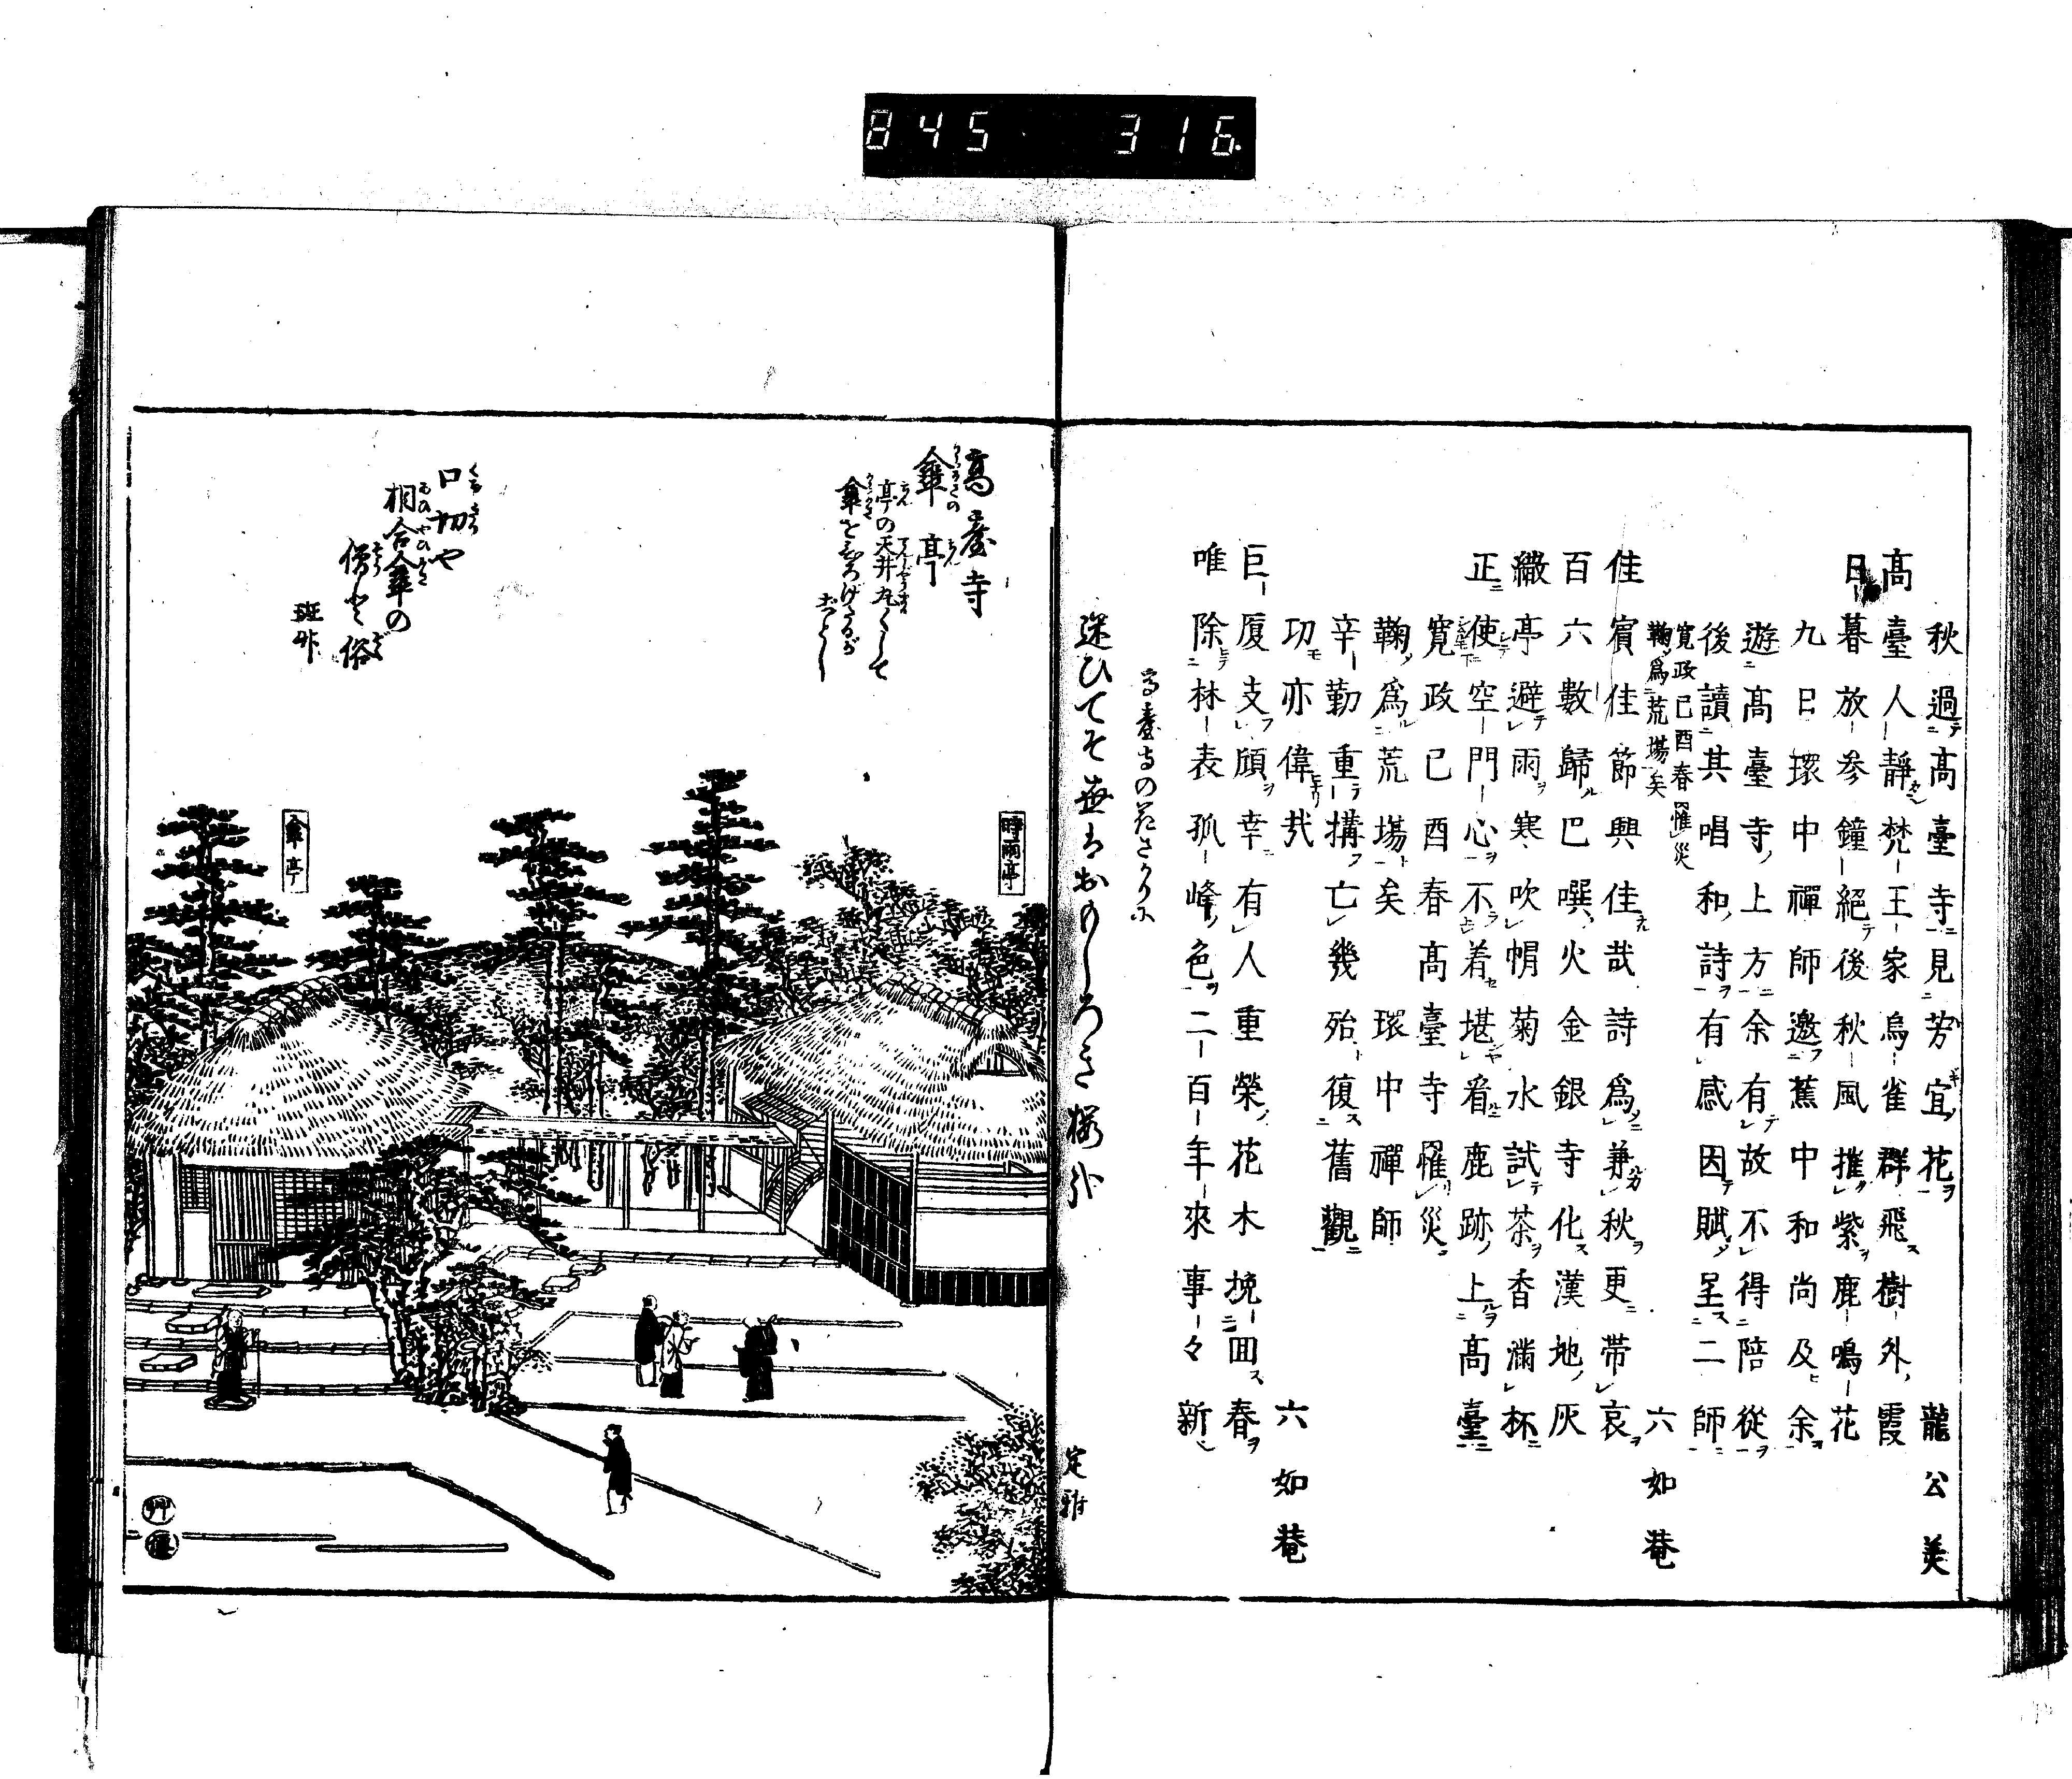 845 316
秋過高臺寺見芳宜花 龍公美
高臺人靜梵王家烏雀群飛樹外霞
日暮放參鐘絕後秋風摧紫鹿鳴花
九日環中禪師邀蕉中和尚及余
遊高臺寺上方余有故不得陪從
後讀其唱和詩有感因賦呈二師
寬政已酉春罹災
鞠爲荒塲矣
六如菴
佳賓佳節興佳哉詩爲兼秋更帶哀
百六數歸巴噀火金銀寺化漢地灰
繖亭避雨寒吹帽菊水試茶香滿杯
正使空門心不着堪看鹿跡上高臺
寬政已酉春高臺寺罹災
鞠爲荒塲矣環中禪師
辛勤重搆亡幾殆復舊觀
功亦偉哉 六如菴
巨厦支頎幸有人重榮花木挽回春
唯除林表孤峰色二百年來事々新
高臺寺の花さかりに
迷ひてそ世はおもしろき櫻か 定雅
高臺寺
傘亭
亭の天井丸くして
傘をひろげたるが
ごとし
口切や
相合傘の
僧と俗
班竹
時雨亭
傘亭